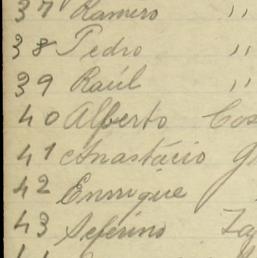 37 Ramiro "
38 Pedro "
39 Raúl "
40 Alberto Cos
41 Anastácio G
42 Enrrique
43 Seferino